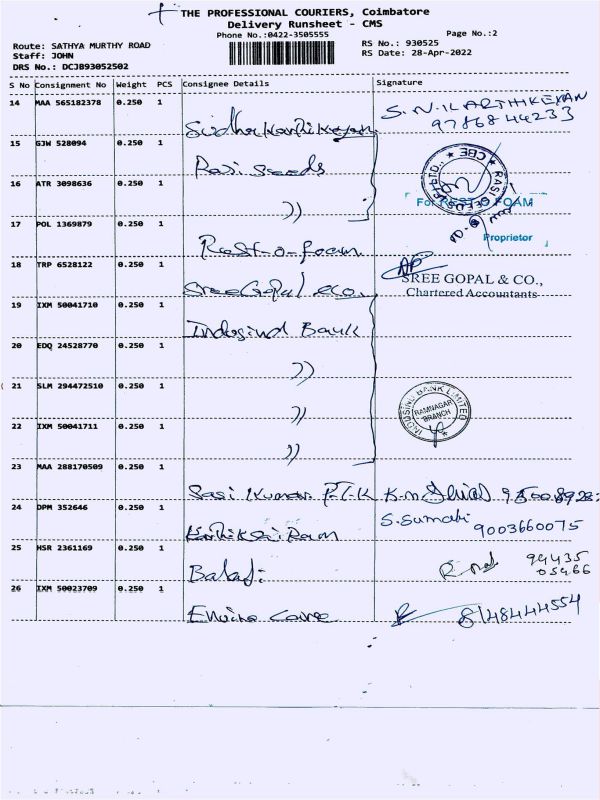 THE PROFESSIONAL COURIERS, Coimbatore
Delivery Runsheet - CMS
Phone No.:0422-3505555
Page No.:2
Route: SATHYA MURTHY ROAD
Staff: JOHN
DRS No.: DCJB93052502
RS No.: 930525
RS Date: 28-Apr-2022
S No Consignment No Weight PCS Consignee Details Signature
14 MAA 565182378 0.250 1 S.N.KARTHIKEYAN
9786844233
15 GJW 528094 0.250 1 Rasi Seeds
16 ATR 3098636 0.250 1 ))
For REST O FOAM
Proprietor
17 POL 1369879 0.250 1 Rest-o-foam
18 TRP 6528122 0.250 1 Sree Gopal &co.
SREE GOPAL & CO.,
Chartered Accountants
19 IXM 50041710 0.250 1 Indusind Bank
20 EDQ 24528770 0.250 1 ))
21 SLM 294472510 0.250 1 ))
INDUSIND BANK LIMITED
RAMNAGAR
BRANCH
22 IXM 50041711 0.250 1 ))
23 MAA 288170509 0.250 1 Sasi Kumar P.T.K
24 DPM 352646 0.250 1 S.Sumati
9003660075
25 HSR 2361169 0.250 1 Balaji
94435
05466
26 IXM 50023709 0.250 1 Enviro care 8148444554